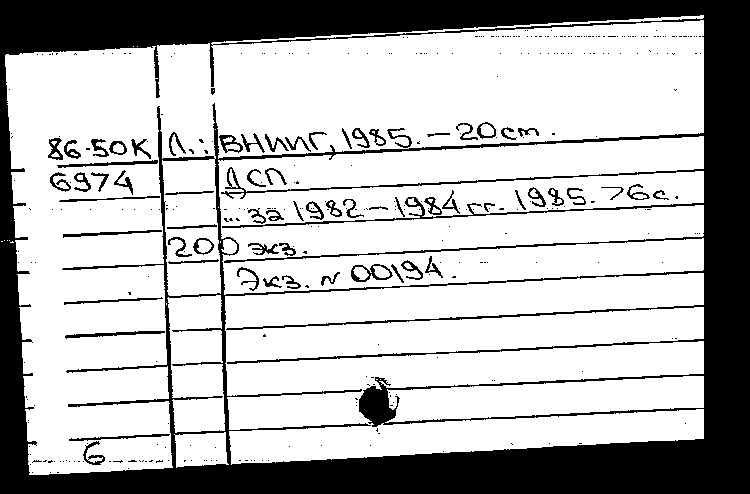 86-50К Л.: ВНИИГ, 1985. – 20 cm.
6974 ДСП.
... за 1982 – 1984 гг. 1985. 76 с.
200 экз.
Экз. N 00194.
6